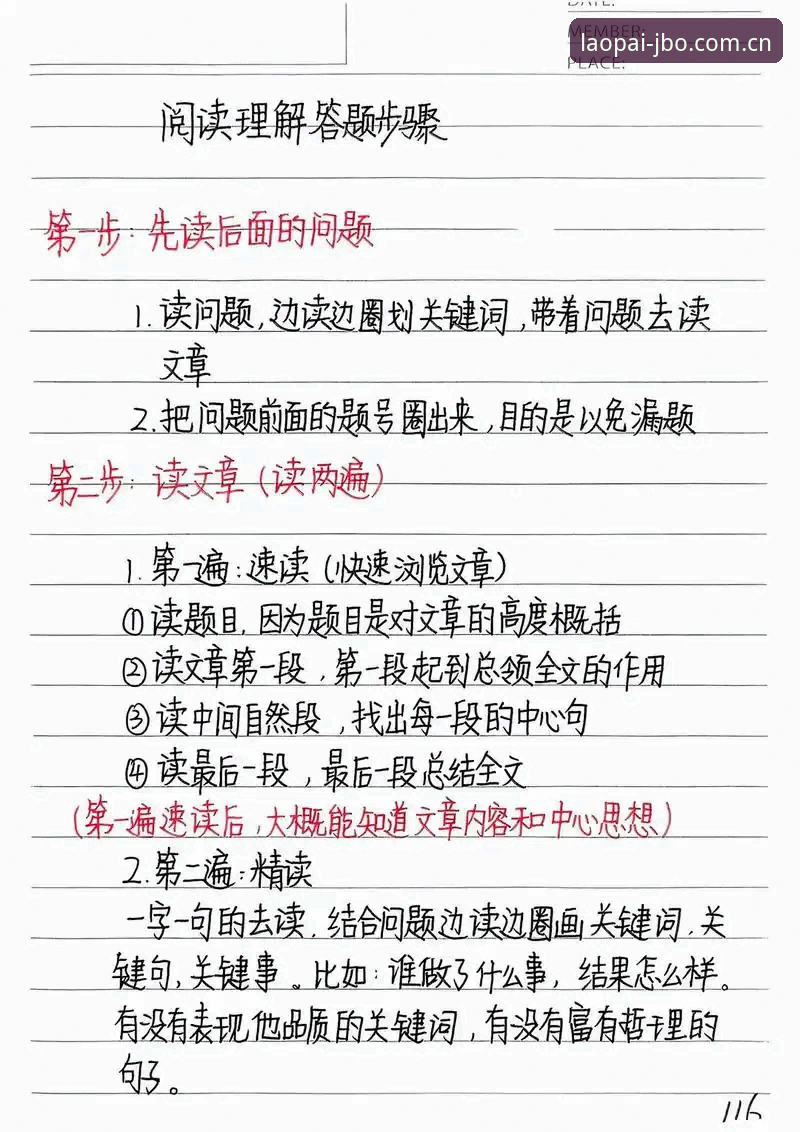 DATE:
MEMBER:
laopai-jbo.com.cn
PLACE:
阅读理解答题步骤
第一步：先读后面的问题
1.读问题，边读边圈划关键词，带着问题去读
文章
2.把问题前面的题号圈出来，目的是以免漏题
第二步：读文章（读两遍）
1.第一遍：速读（快速浏览文章）
①读题目，因为题目是对文章的高度概括
②读文章第一段，第一段起到总领全文的作用
③读中间自然段，找出每一段的中心句
④读最后一段，最后一段总结全文
（第一遍速读后，大概能知道文章内容和中心思想）
2.第二遍：精读
一字一句的去读，结合问题边读边圈画关键词，关
键句，关键事。比如：谁做了什么事，结果怎么样。
有没有表现他品质的关键词，有没有富有哲理的
句子。
116